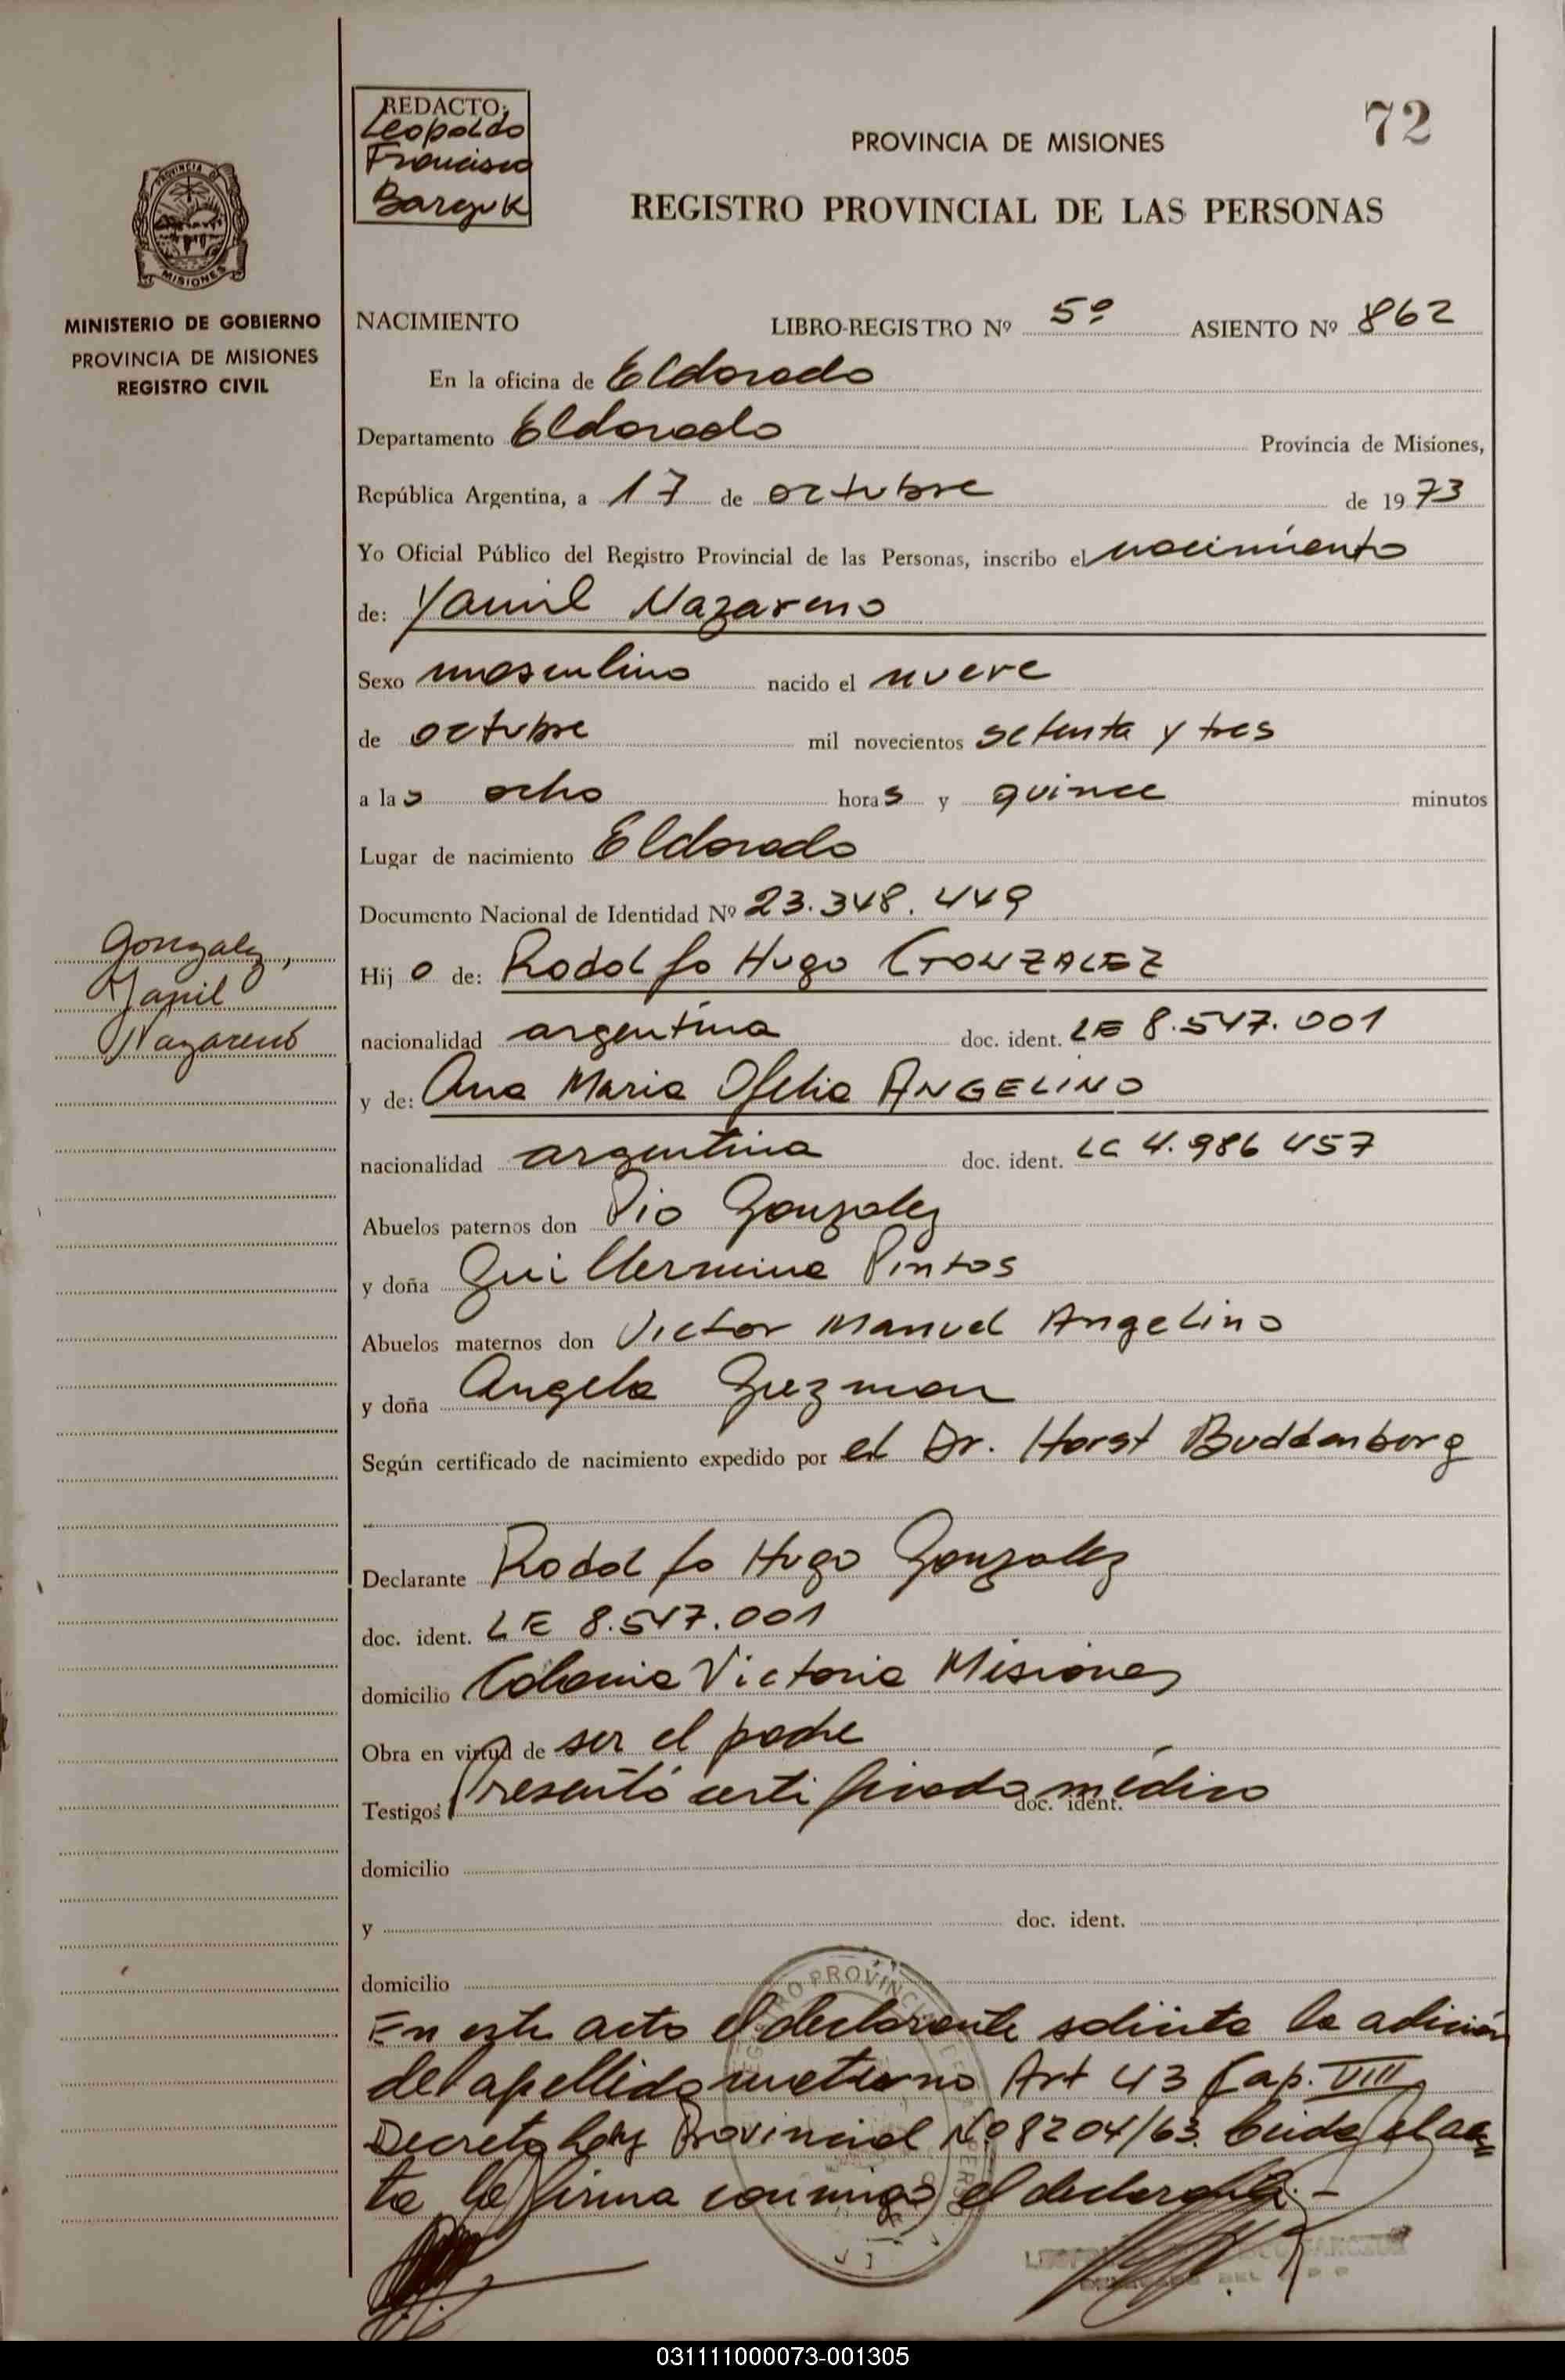 72
REDACTO:
Leopoldo
Francisco
Barczuk
PROVINCIA DE MISIONES
REGISTRO PROVINCIAL DE LAS PERSONAS
PROVINCIA DE
MISIONES
MINISTERIO DE GOBIERNO
PROVINCIA DE MISIONES
REGISTRO CIVIL
NACIMIENTO LIBRO-REGISTRO Nº 5º ASIENTO Nº 862
En la oficina de Eldorado
Departamento Eldorado Provincia de Misiones,
República Argentina, a 17 de octubre de 1973
Yo Oficial Público del Registro Provincial de las Personas, inscribo el nacimiento
de: Yamil Nazareno
Sexo masculino nacido el nueve
de octubre mil novecientos setenta y tres
a las ocho horas y quince minutos
Lugar de nacimiento Eldorado
Documento Nacional de Identidad Nº 23.348.449
Gonzalez,
Yamil
Nazareno
Hijo de: Rodolfo Hugo GONZALEZ
nacionalidad argentina doc. ident. LE 8.547.001
y de: Ana Maria Ofelia ANGELINO
nacionalidad argentina doc. ident. LC 4.986 457
Abuelos paternos don Pio Gonzalez
y doña Guillermina Pintos
Abuelos maternos don Victor Manuel Angelino
y doña Angela Guzman
Según certificado de nacimiento expedido por el Dr. Horst Buddenborg
Declarante Rodolfo Hugo Gonzalez
doc. ident. LE 8.547.001
domicilio Colonia Victoria Misiones
Obra en virtud de ser el padre
Testigos Presentó certificado médico doc. ident.
domicilio
y doc. ident.
domicilio
En este acto el declarante solicita la adición
del apellido materno Art 43 Cap. VIII
Decreto Ley Provincial Nº 8204/63. Leida el ac=
ta la firma conmigo el declarante.-
031111000073-001305